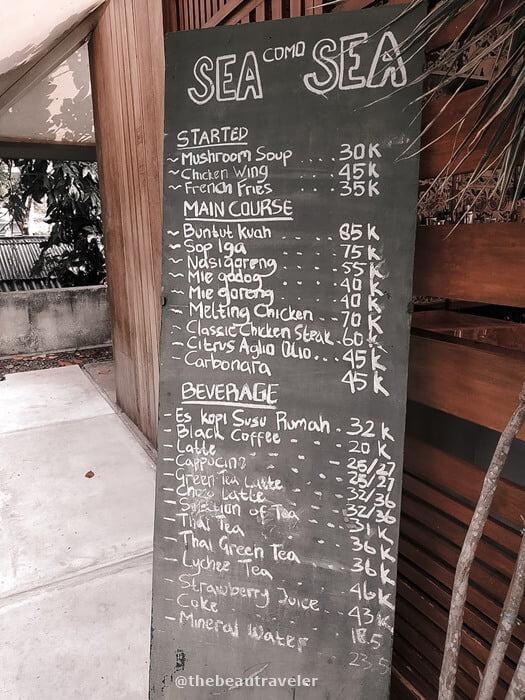 SEA COMO SEA
STARTED
~ Mushroom Soup .... 30K
~ Chicken Wing ... 45K
~ French Fries 35K
MAIN COURSE
~ Buntut Kuah .... 85K
~ Sop Iga 75K
~ Nasi goreng 55K
~ Mie godog 40K
~ Mie goreng 40K
~ Melting Chicken .. 70K
- Classic Chicken Steak. 60K
- Citrus Aglio Olio... 45K
- Carbonara 45K
BEVERAGE
- Es kopi Susu Rumah . 32K
- Black Coffee 20K
- Latte 25/27
- Cappucino 25/27
- Green Tea Latte 32/36
- Choco Latte 32/36
- Selection of Tea 31K
- Thai Tea 36K
- Thai Green Tea 36K
- Lychee Tea 46K
- Strawberry Juice 43K
- Coke 18.5
- Mineral Water 23.5
@thebeautraveler